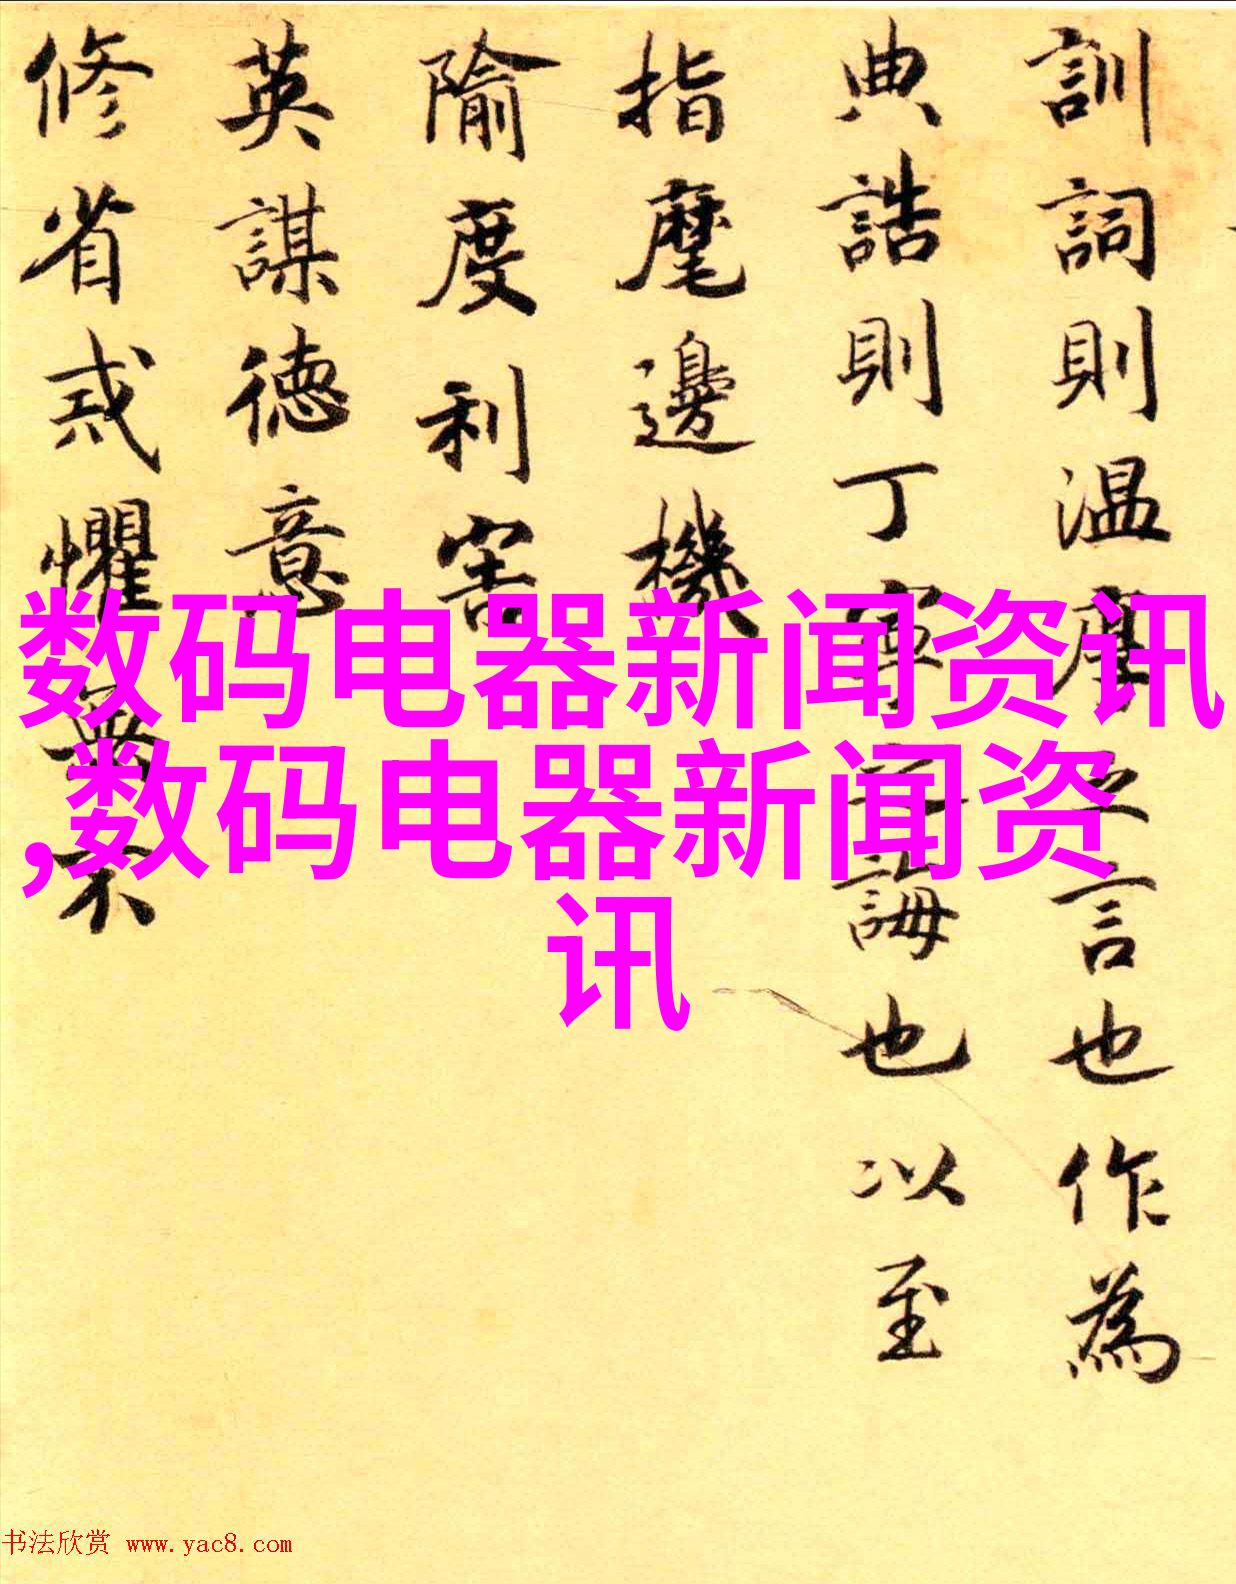 訓詞則温厚之言也作為
典誥則丁寧  誨也以至
指麾邊機
隃度利害
英謀德意
修省戒懼無不
数码电器新闻资讯
,数码电器新闻资
讯
书法欣赏 www.yac8.com